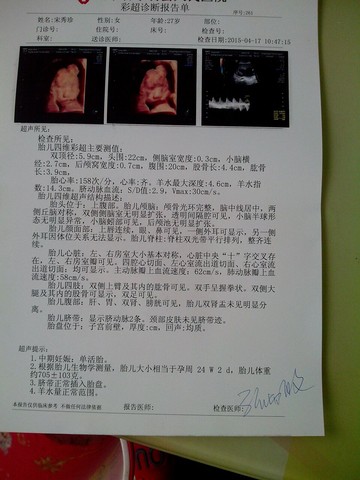 彩超诊断报告单
序号:001
姓名:宋秀珍 性别:女 年龄:27岁 部位:
门诊号: 住院号: 床号: 检查号:
科室: 送诊医师: 检查日期:2015-04-17 10:47:15
超声所见:
检查所见:
胎儿四维彩超主要测值:
双顶径:5.9cm, 头围:22cm, 侧脑室宽度:0.3cm, 小脑横
径:2.7cm, 后颅窝宽度:0.7cm, 腹围:20cm, 股骨长:4.4cm, 肱骨
长:3.9cm,
胎心率:158次/分, 心率:齐。羊水最大深度:4.6cm, 羊水指
数:14.3cm。脐动脉血流: S/D值:2.9, Vmax:30cm/s。
胎儿四维超声结构描述:
胎头位于: 上腹部, 胎儿颅脑: 颅骨光环完整, 脑中线居中, 两
侧丘脑对称, 双侧侧脑室无明显扩张, 透明间隔腔可见, 小脑半球形
态无明显异常, 小脑蚓部可见, 后颅池无明显扩张。
胎儿颜面部: 上唇连续、眼、鼻可见, 一侧外耳可显示, 另一侧
外耳因体位关系无法显示。胎儿脊柱:脊柱双光带平行排列, 整齐连
续。
胎儿心脏: 左、右房室大小基本对称, 心脏中央 "十" 字交叉存
在, 左、右房室瓣可见。四腔心切面、左心室流出道切面、右心室流
出道切面: 均可显示。主动脉瓣上血流速度: 62cm/s, 肺动脉瓣上血
流速度:58cm/s。
胎儿四肢: 双侧上臂及其内的肱骨可见。双手呈握拳状, 双侧大
腿及其内的股骨可显示, 双足可见。
胎儿腹部: 肝、胃、双肾、膀胱可见, 胎儿双肾盂未见明显分
离。
胎儿脐带: 显示脐动脉2条。颈部皮肤未见脐带迹。
胎盘位于: 子宫前壁, 厚度:cm, 回声:均质。
超声提示:
1.中期妊娠: 单活胎。
2.根据胎儿生物学测量, 胎儿大小相当于孕周 24 W 2 d, 胎儿体重
约705±103克。
3.脐带正常插入胎盘。
4.羊水量正常范围。
本报告仅供临床参考 不做任何法律依据 报告医师: 检查医师: